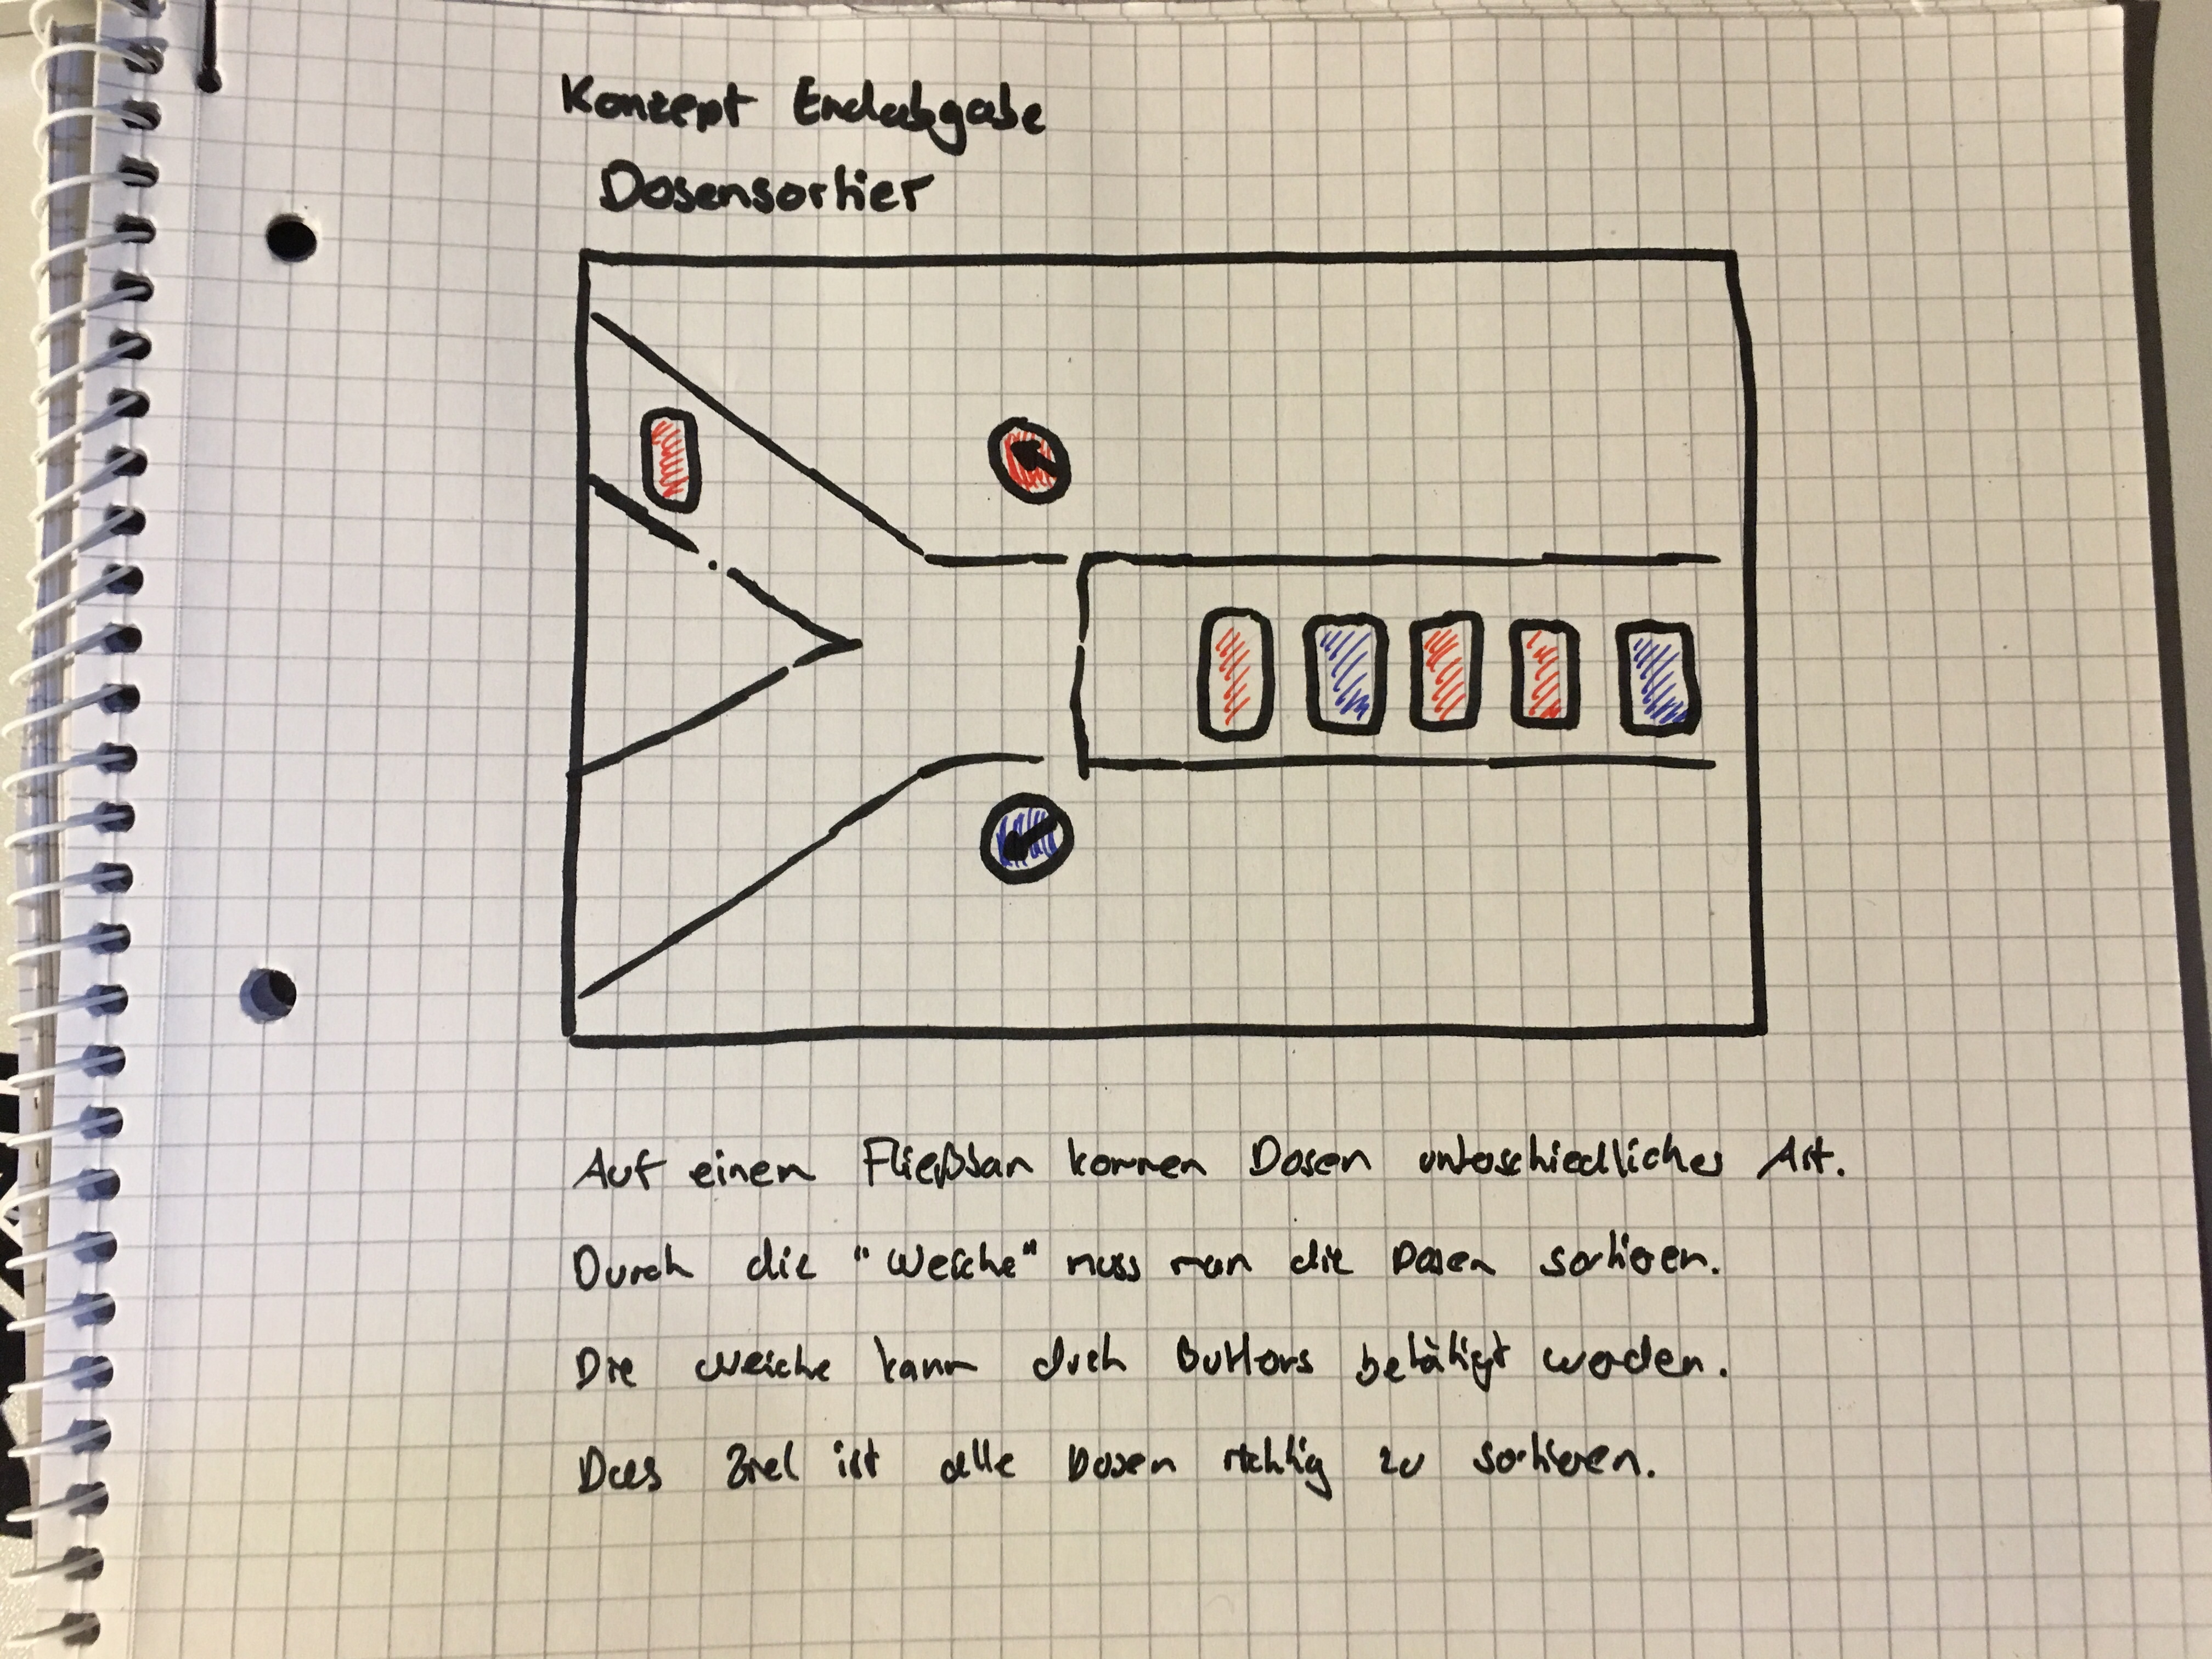 Konzept Endabgabe
Dosensortier
Auf einem Fließban kommen Dosen unterschiedlicher Art.
Durch die "Weiche" muss man die Dosen sortieren.
Die Weiche kann durch Buttons betätigt werden.
Das Ziel ist alle Dosen richtig zu sortieren.